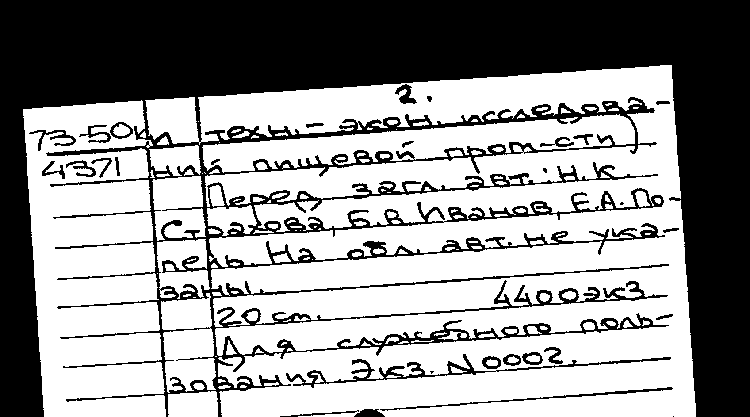 2.
73-50к и техн.-экон. исследова-
4371 ний пищевой пром-сти)
Перед загл. авт.: Н.К.
Страхова, Б.В. Иванов, Е.А. По-
пель. На обл. авт. не ука-
заны.
20 см. 4400 экз
Для служебного поль-
зования. Экз. N 0002.